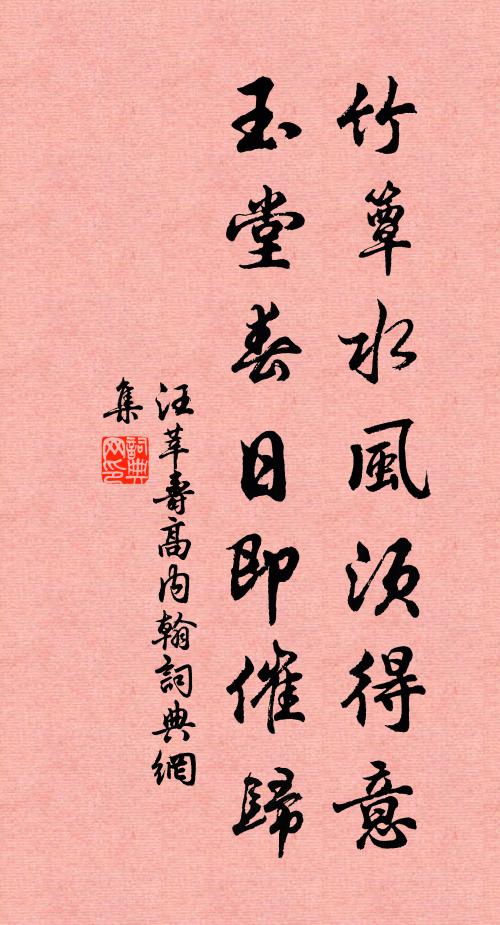 竹簟水風須得意
玉堂春日即催歸
汪莘壽高內翰詞典網
集
詞典
网印